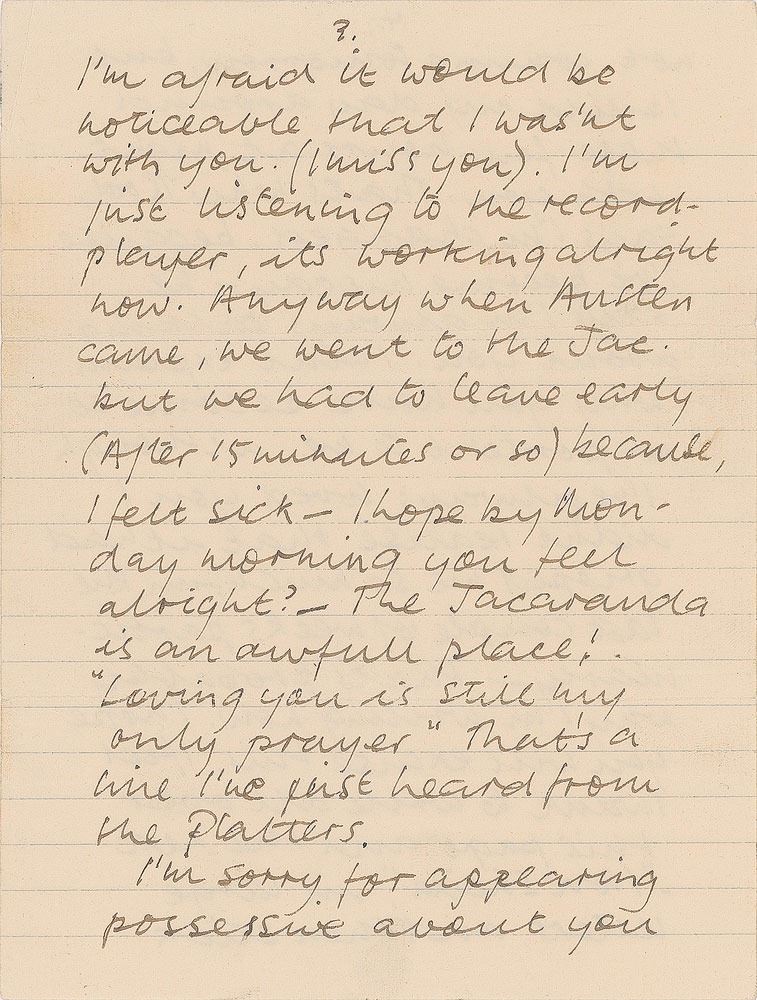 3.
I'm afraid it would be
noticeable that I was'nt
with you. (I miss you). I'm
just listening to the record-
player, its working alright
now. Anyway when Austen
came, we went to the Jac.
but we had to leave early
(After 15 minutes or so) because,
I felt sick — I hope by Mon-
day morning you feel
alright? — The Jacaranda
is an awfull place! .
"Loving you is still my
only prayer" That's a
line I've just heard from
the Platters.
I'm sorry for appearing
possessive about you